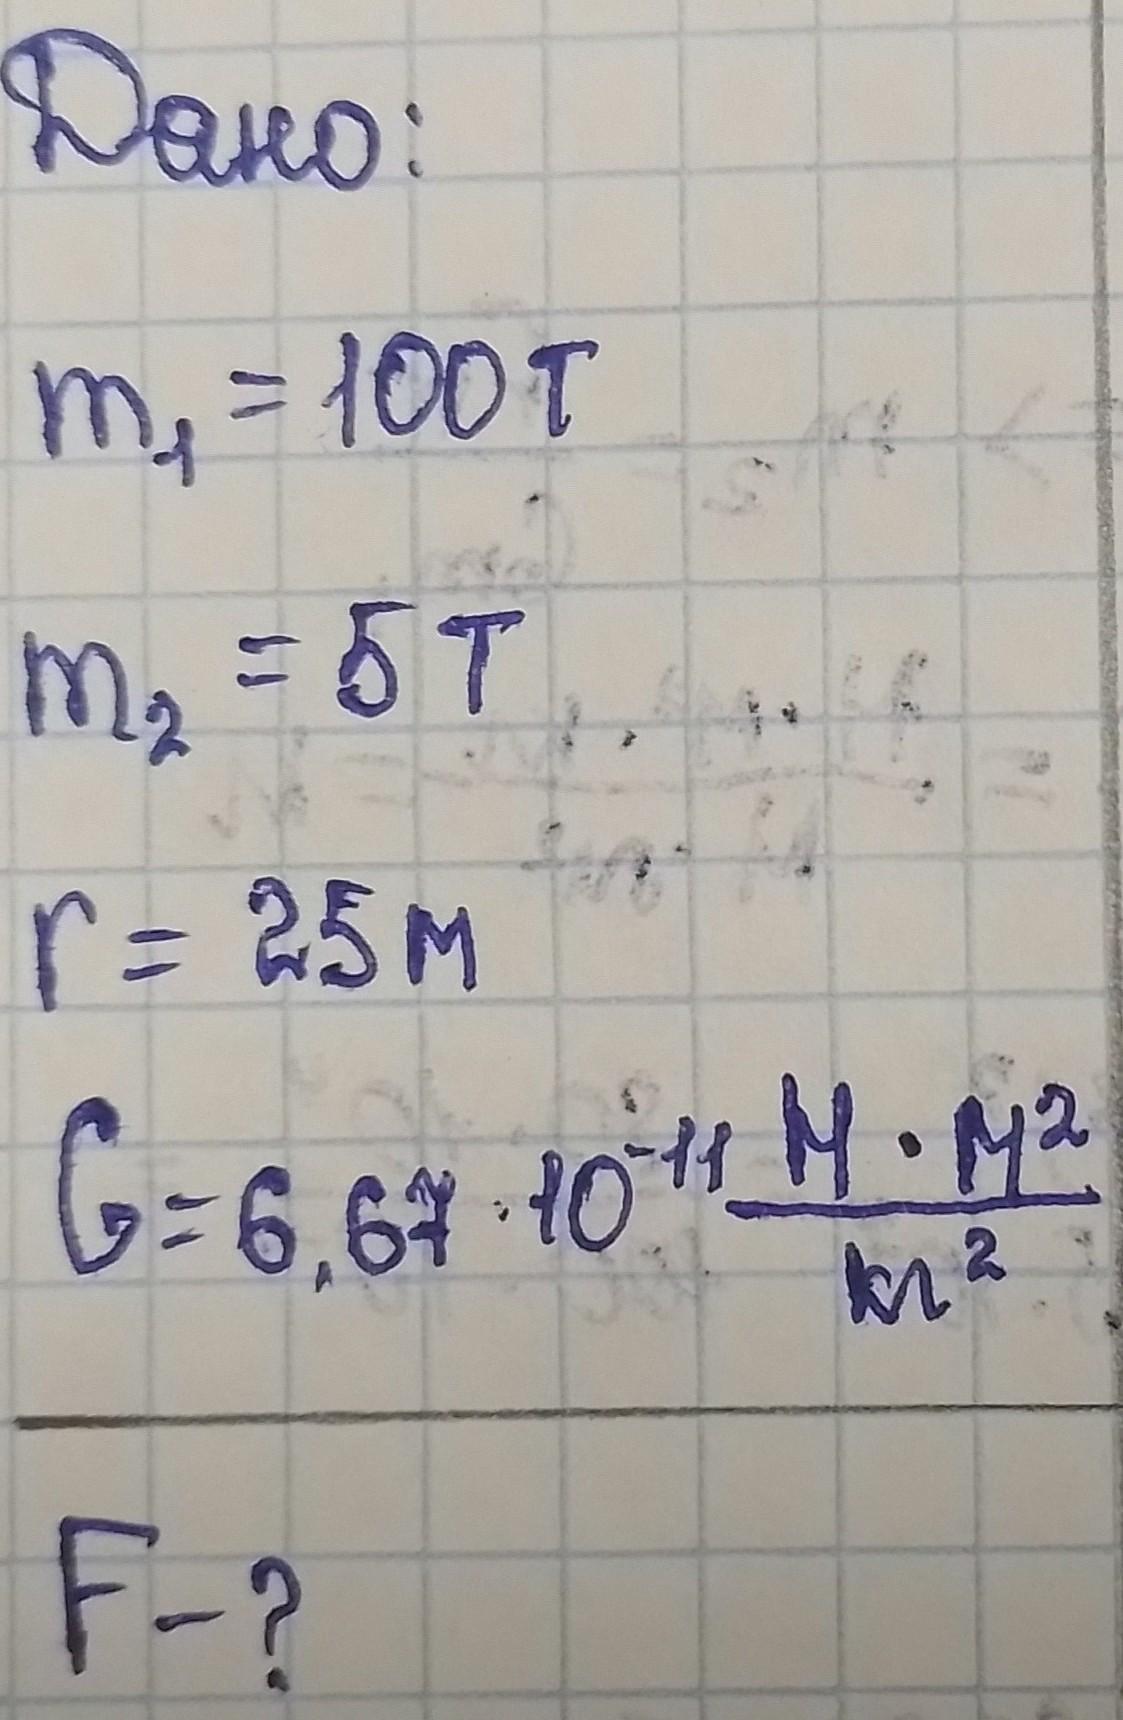 Дано:
m₁ = 100 т
m₂ = 5 т
r = 25 м
G = 6,67 · 10⁻¹¹ Н · м² / кг²
F - ?